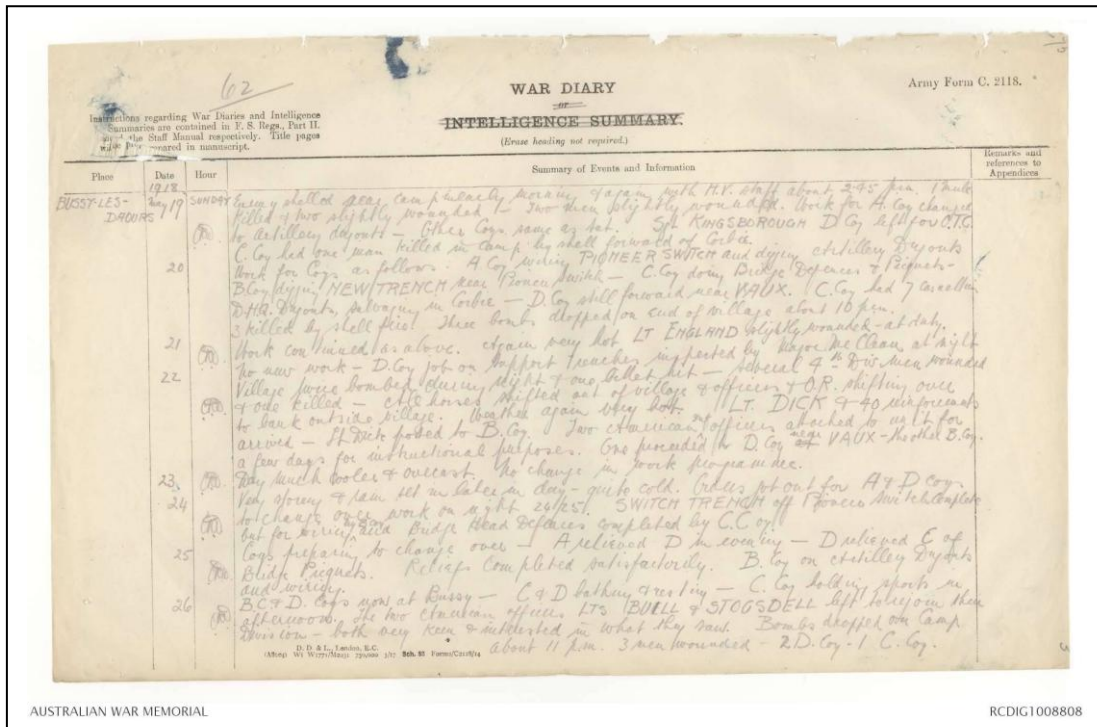 62
WAR DIARY
or
INTELLIGENCE SUMMARY.
(Erase heading not required.)
Army Form C. 2118.
Instructions regarding War Diaries and Intelligence
Summaries are contained in F. S. Regs., Part II.
and the Staff Manual respectively. Title pages
will be prepared in manuscript.
Place
Date
Hour
Summary of Events and Information
Remarks and
references to
Appendices
1918
BUSSY-LES-DAOURS May 19 SUNDAY Enemy shelled near camp in early morning & again with H.V. stuff about 2.45 pm. 1 mule
killed & two slightly wounded - Two men slightly wounded. Work for A. Coy changed
to Artillery dugouts - Other Coys same as Sat. Sgt KINGSBOROUGH D Coy left for O.T.C.
C. Coy had one man killed in camp by shell forward of Corbie.
20 Work for Coys as follows. A Coy wiring PIONEER SWITCH and digging Artillery Dugouts
B Coy digging NEW TRENCH near Pioneer Switch - C. Coy doing Bridge Defences & Picquets -
D.H.Q. Dugouts, salvaging in Corbie - D. Coy still forward near VAUX. C. Coy had 7 casualties
3 killed by shell fire. Three bombs dropped on end of village about 10 p.m.
21 Work continued as above. Again very hot LT ENGLAND slightly wounded - at duty.
No new work - D. Coy job on Support Trenches inspected by Major McClean at night
22 Village twice bombed during night & one billet hit - several 4th Div men wounded
& one killed - All horses shifted out of village & officers & O.R. shifting over
to bank outside village. Weather again very hot. LT. DICK & 40 reinforcements
arrived - Lt Dick posted to B. Coy. Two American officers attached to unit for
a few days for instructional purposes. One proceeded to D. Coy near VAUX - the other B. Coy.
23 Day much cooler & overcast. No change in work programme.
24 Very stormy & rain set in later in day - quite cold. Orders got out for A & D Coys
to change over work on night 24/25. SWITCH TRENCH off Pioneer Switch complete
but for wiring and Bridge Head defences completed by C. Coy.
25 Coys preparing to change over - A relieved D in evening - D relieved C of
Bridge Picquets. Reliefs completed satisfactorily. B. Coy on Artillery Dugouts
and wiring.
26 B.C & D. Coys now at Bussy - C & D bathing & resting - C. Coy holding sports in
afternoon. The two American officers LTS BUELL & STOGSDELL left to rejoin their
Division - both very keen & interested in what they saw. Bombs dropped on Camp
about 11 p.m. 3 men wounded - 2 D. Coy - 1 C. Coy.
D. D. & L., London, E.C.
Sch. 52 Forms/C2118/14
AUSTRALIAN WAR MEMORIAL
RCDIG1008808